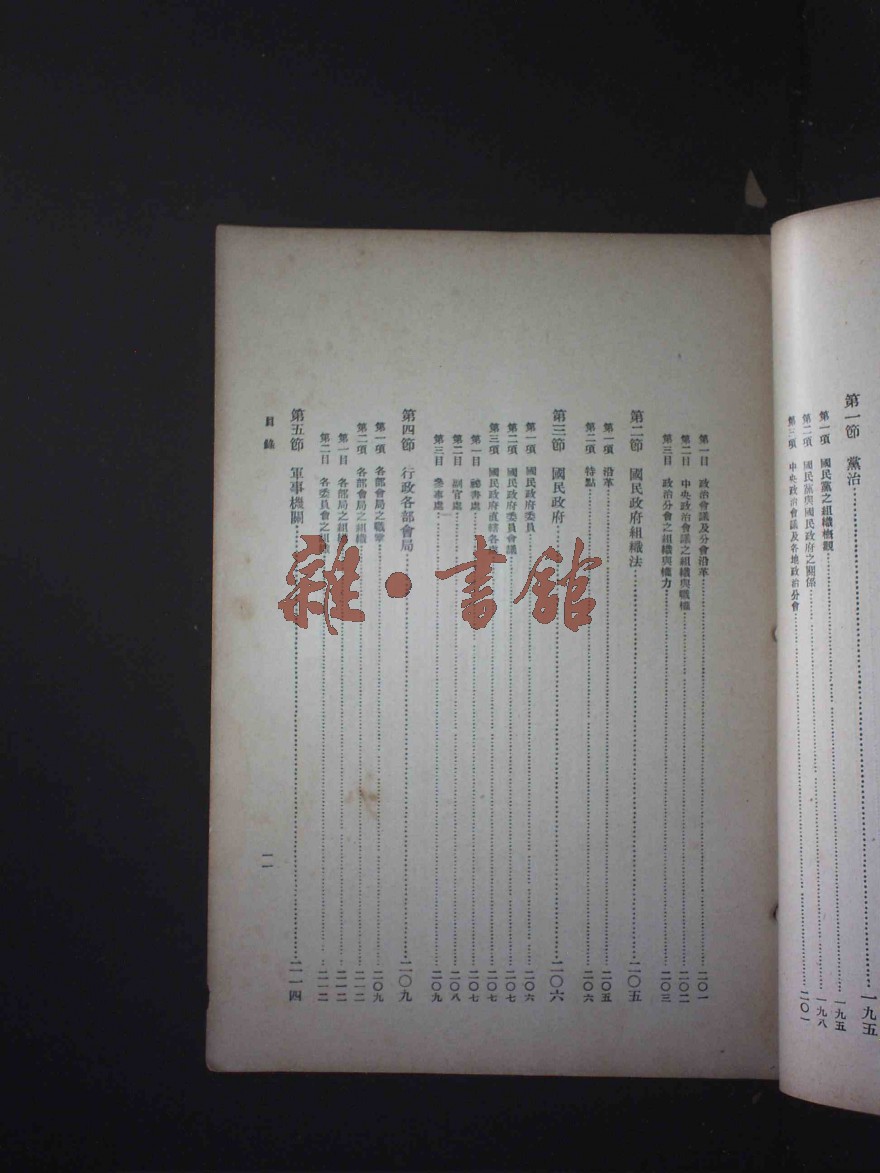 第一節 黨治……一九五
第一項 國民黨之組織槪觀……一九五
第二項 國民黨與國民政府之關係……一九八
第三項 中央政治會議及各地政治分會……二〇一
第一目 政治會議及分會沿革……二〇一
第二目 中央政治會議之組織與職權……二〇二
第三目 政治分會之組織與權力……二〇三
第二節 國民政府組織法……二〇五
第一項 沿革……二〇五
第二項 特點……二〇六
第三節 國民政府……二〇六
第一項 國民政府委員……二〇六
第二項 國民政府委員會議……二〇七
第三項 國民政府直轄各……二〇七
第一目 祕書處……二〇七
第二目 副官處……二〇八
第三目 參事處……二〇九
第四節 行政各部會局……二〇九
第一項 各部會局之職掌……二〇九
第二項 各部會局之組織……二一二
第一目 各部局之組織……二一二
第二目 各委員會之組織……二一二
第五節 軍事機關……二一四
目錄
一一
雜·書館